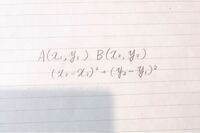 A(x₁, y₁) B(x₂, y₂)
(x₂ - x₁)² + (y₂ - y₁)²